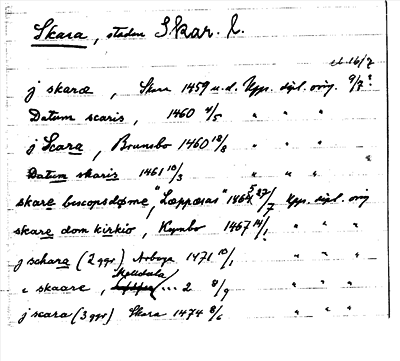 Skara, staden Skar. l.
el. 16/7
j skaræ, Skara 1459 u.d. Upps. dipl. orig. 9/7 ?
Datum scaris, 1460 4/5 " " "
j Scara, Brunsbo 1460 18/8 " " "
Datum skaris 1461 10/3 " " "
skare biscopsdøme, "Læppæsas" 27/7 Upps. dipl. orig
skare dom kirkio, Kymbo 1467 14/1 " " "
j schara (2 ggr) Arboga 1471 10/1 " " "
i skaare, ... 2 8/9 " " "
j scara (3 ggr) Skara 1474 8/6 " " "